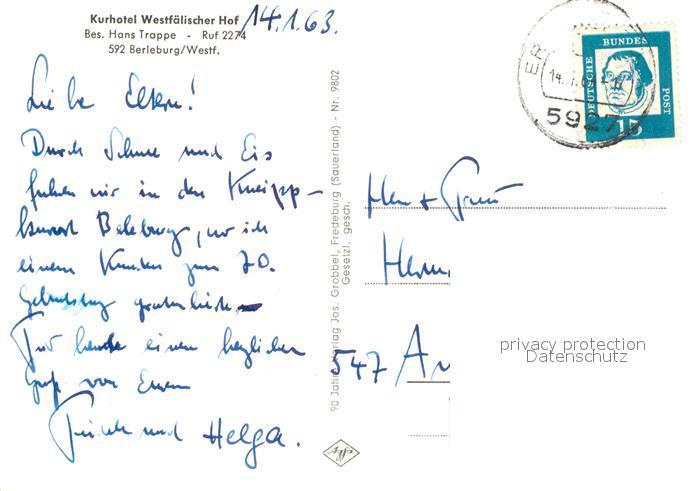 Kurhotel Westfälischer Hof
Bes. Hans Trappe - Ruf 2274
592 Berleburg/Westf.
14.1.63.
Liebe Eltern!
Durch Schnee und Eis
fuhren wir in den Kneipp-
kurort Berleburg, wo ich
einem Kunden zum 70.
Geburtstag gratulierte.
Für heute einen herzlichen
Gruß von Euren
und Helga.
90 Jahre Verlag Jos. Grobbel, Fredeburg (Sauerland) - Nr. 9802
Gesetzl. gesch.
DEUTSCHE BUNDES POST
15
14.1.63
5927
Herrn + Frau
547 An
privacy protection
Datenschutz